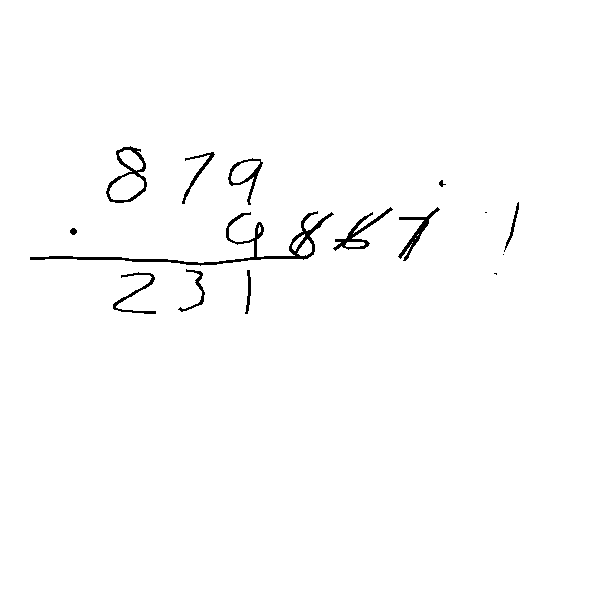 879
. 9 8 6 7 1
231